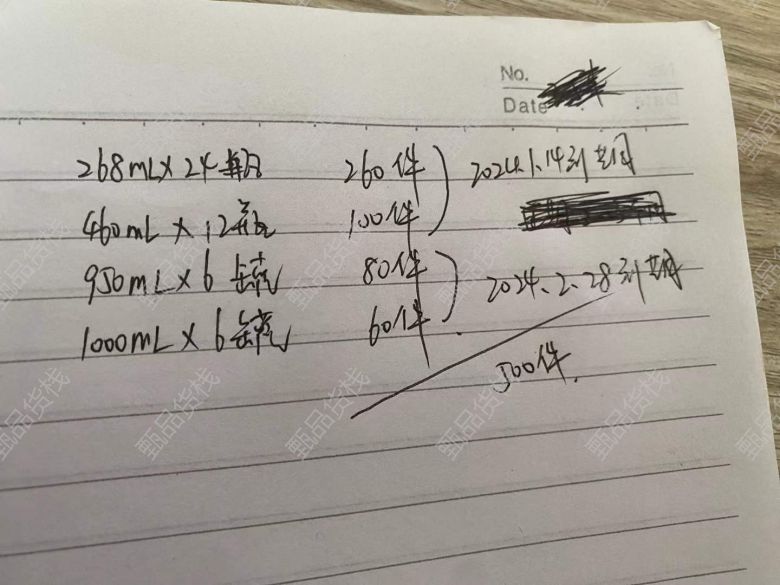 No.
Date
268mL×24瓶 260件 2024.1.14到期
460mL×12瓶 100件
950mL×6 80件 2024.2.28到期
1000mL×6 60件
500件.
甄品货栈